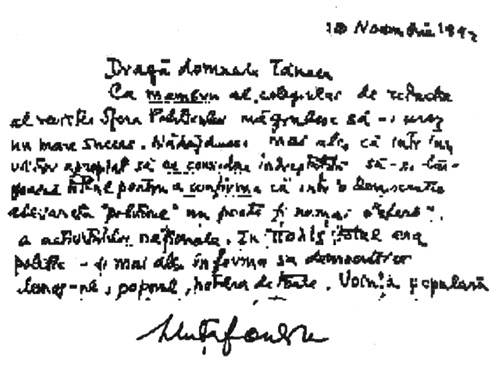 10 Noembrie 1992
Dragă domnule Tănase
Ca membru al colegiului de redacție
al revistei Sfera Politicului mă grăbesc să-i urez
un mare succes. Nădăjduesc mai ales, că într'un
viitor apropiat să se considere îndreptățită să-și
titlul pentru a confirma că într'o democrație
"politica" nu poate fi numai o "sferă"
a activităților naționale. In Πολις totul era
politic - și mai ales în forma sa democratică
, poporul, hotăra de toate. Voința populară